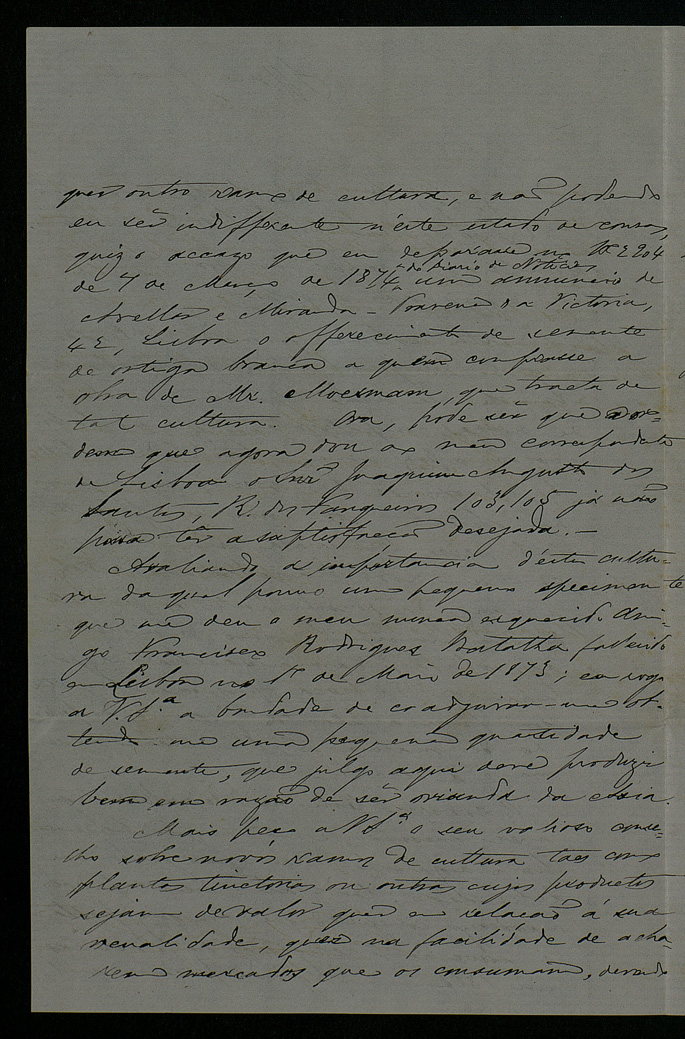 quer outro ramo de cultura, e não podendo
eu sêr indifferente n'éste estado de cousas,
quiz o accazo que eu deparasse no Nº 2904
do Diario de Noticias,
de 7 de Março de 1874, um annuncio de
Arellos e Miranda - Travessa da Victoria,
42, Lisboa o offerecimento de semente
de ortiga branca a quem comprasse a
obra de Mr. Moerman, que tracta de
tal cultura. Ora, póde sêr que a or=
dem que agora dou ao meu correspondente
de Lisboa o Snr. Joaquim Augusto dos
Santos, R. dos Fanqueiros 103, 105 já não
possa têr a satisfacção desejada. —
Avaliando a importancia d'ésta cultu=
ra da qual possuo um pequeno specimen
que me deu o meu nunca esquecido Ami=
go Francisco Rodrigues Batalha fallecido
em Lisboa no 1º de Maio de 1873; eu rogo
a V. Sª a bondade de coadjuvar-me ob=
tendo-me uma pequena quantidade
de semente, que julgo aqui deve produzir
bem em razão de sêr oriunda da Asia.
Mais peço a V Sª o seu valioso conse=
lho sobre novos ramos de cultura taes como
plantas tinctorias ou outras cujos productos
sejam de valor quer em relação á sua
venalidade, quer na facilidade de acha=
rem mercados que os consumam, devendo